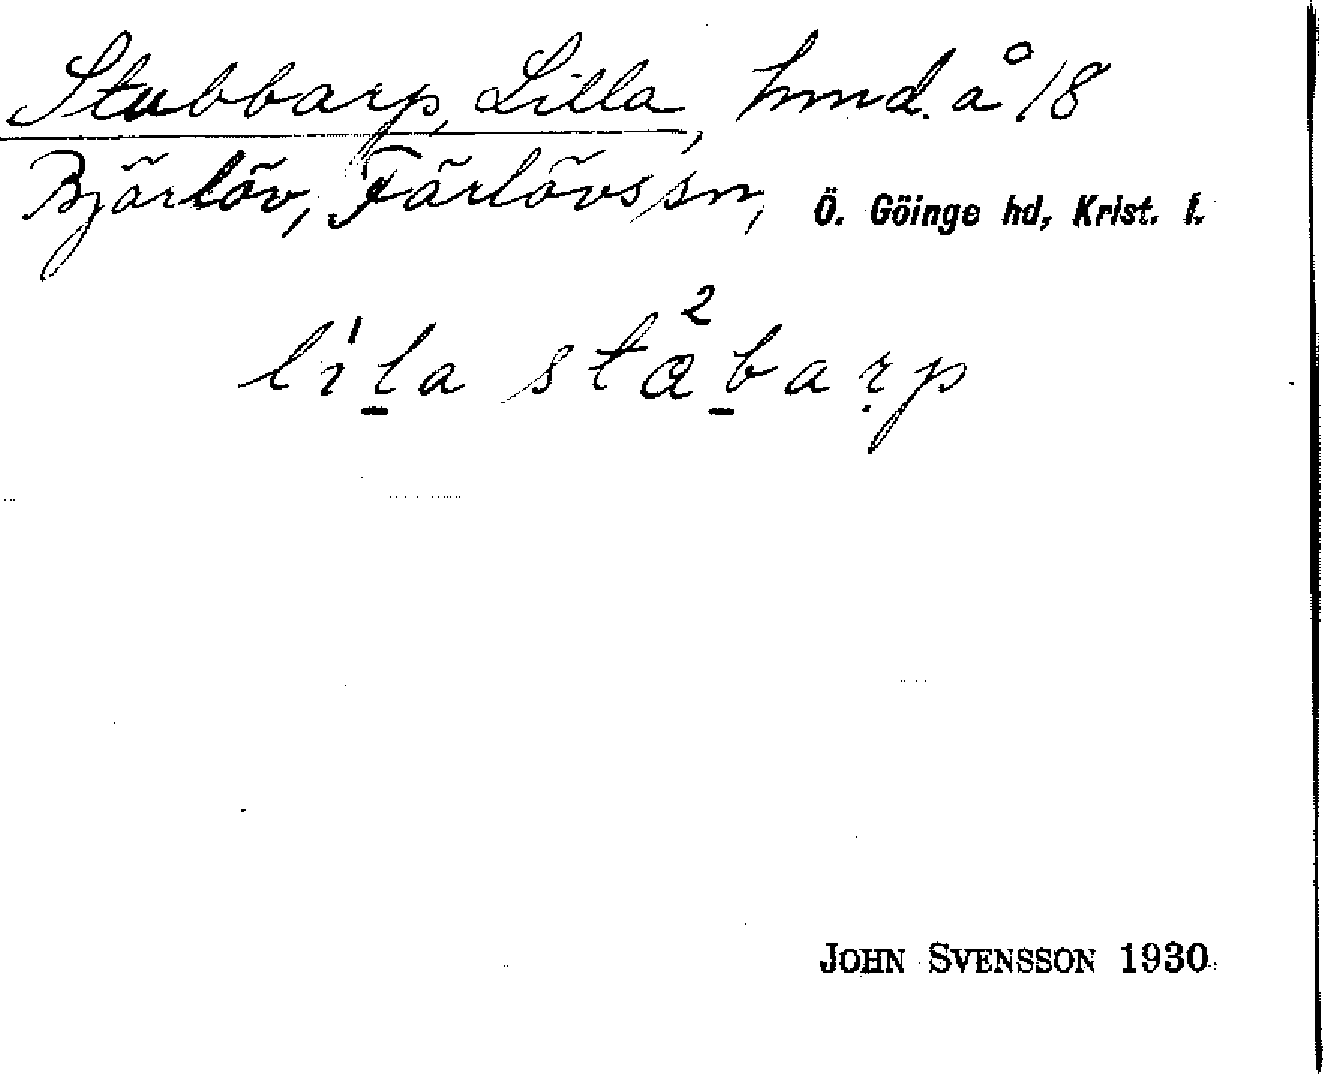 Stubbarp, Lilla, hmd. å 18
Bjärlöv, Färlövs sn, Ö. Göinge hd, Krist. l.
li'la sta²barp
JOHN SVENSSON 1930